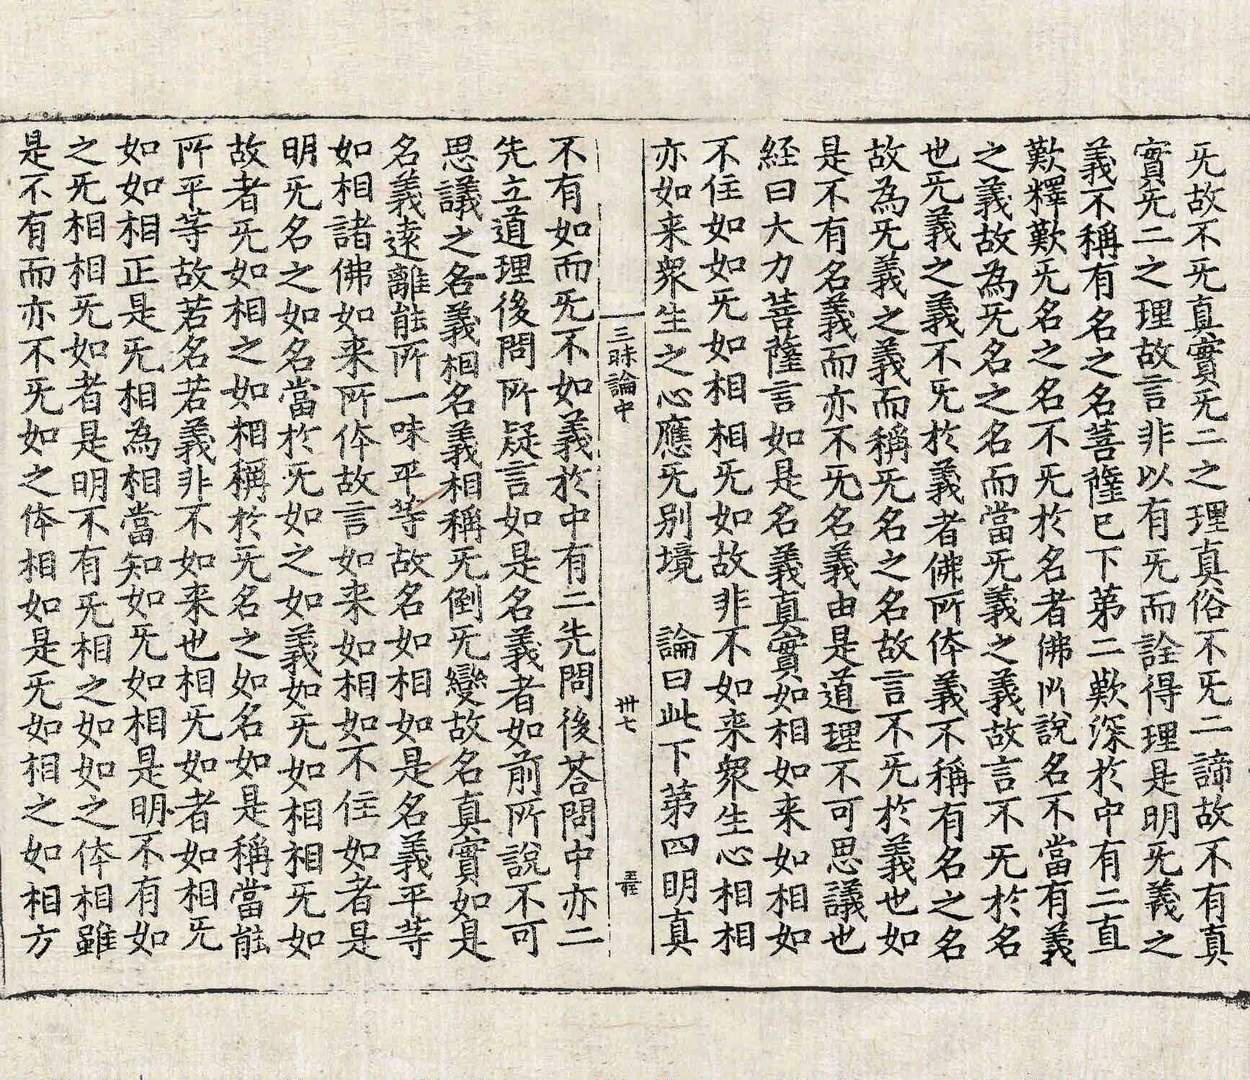 旡故不旡真實旡二之理真俗不旡二諦故不有真
實旡二之理故言非以有旡而詮得理是明旡義之
義不稱有名之名菩薩已下第二歎深於中有二直
歎釋歎旡名之名不旡於名者佛所說名不當有義
之義故為旡名之名而當旡義之義故言不旡於名
也旡義之義不旡於義者佛所体義不稱有名之名
故為旡義之義而稱旡名之名故言不旡於義也如
是不有名義而亦不旡名義由是道理不可思議也
経曰大力菩薩言如是名義真實如相如来如相如
不住如如旡如相相旡如故非不如来衆生心相相
亦如来衆生之心應旡别境 論曰此下第四明真
三昧論中 卅七 王程
不有如而旡不如義於中有二先問後荅問中亦二
先立道理後問所疑言如是名義者如前所說不可
思議之名義相名義相稱旡倒旡變故名真實如是
名義逺離能所一味平等故名如相如是名義平等
如相諸佛如来所体故言如来如相如不住如者是
明旡名之如名當於旡如之如義如旡如相相旡如
故者旡如相之如相稱於旡名之如名如是稱當能
所平等故若名若義非不如来也相旡如者如相旡
如如相正是旡相為相當知如旡如相是明不有如
之旡相相旡如者是明不有旡相之如如之体相雖
是不有而亦不旡如之体相如是旡如相之如相方